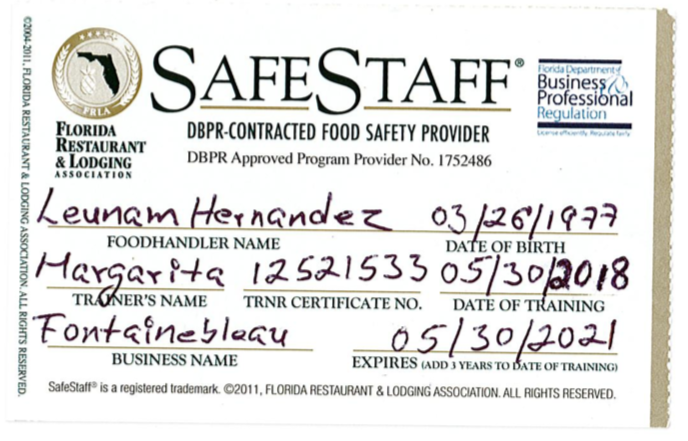 ©2004-2011, FLORIDA RESTAURANT & LODGING ASSOCIATION. ALL RIGHTS RESERVED.
FRLA
FLORIDA
RESTAURANT
& LODGING
ASSOCIATION
SAFESTAFF®
DBPR-CONTRACTED FOOD SAFETY PROVIDER
DBPR Approved Program Provider No. 1752486
Florida Department of
Business &
Professional
Regulation
License efficiently. Regulate fairly.
Leunam Hernandez 03/26/1977
FOODHANDLER NAME DATE OF BIRTH
Margarita 12521533 05/30/2018
TRAINER'S NAME TRNR CERTIFICATE NO. DATE OF TRAINING
Fontainebleau 05/30/2021
BUSINESS NAME EXPIRES (ADD 3 YEARS TO DATE OF TRAINING)
SafeStaff® is a registered trademark. ©2011, FLORIDA RESTAURANT & LODGING ASSOCIATION. ALL RIGHTS RESERVED.